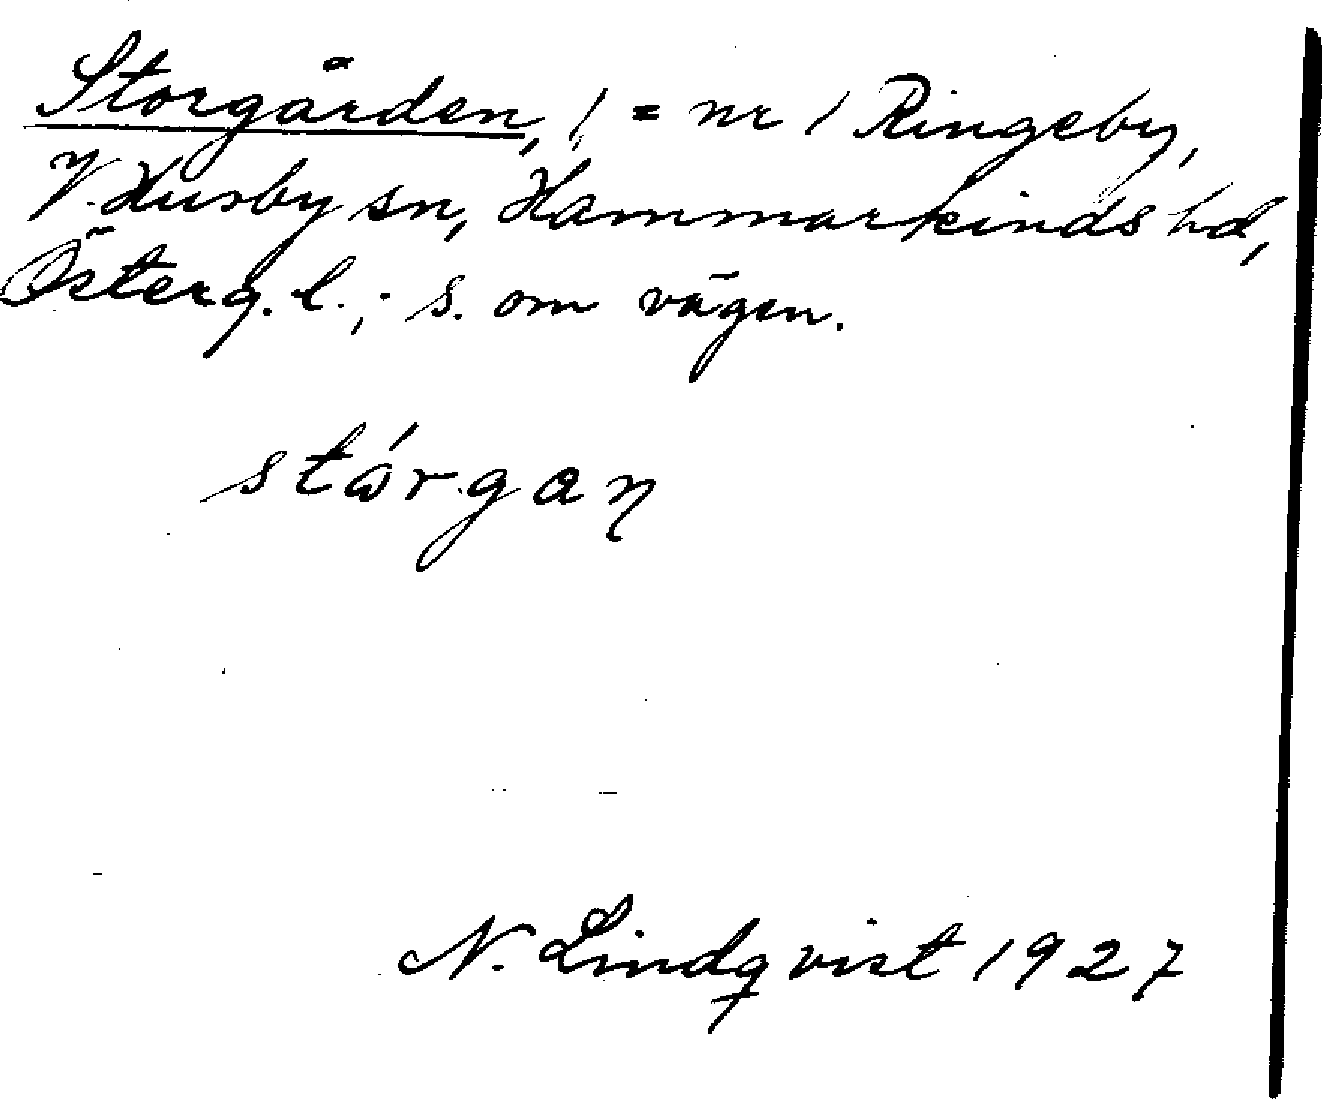 Storgården, 1 = nr 1 Ringeby,
V. Husby sn, Hammarkinds hd,
Österg. l.; S. om vägen.
stǿrgaŋ
N. Lindqvist 1927